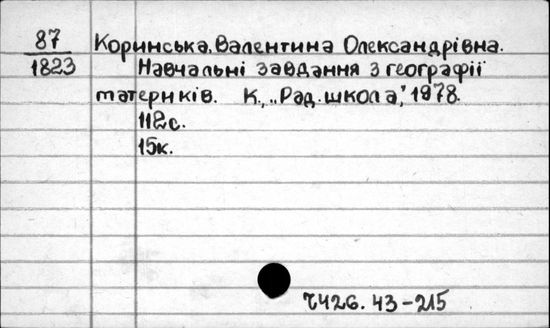 87
1823
Коринська, Валентина Олександрівна.
Навчальні завдання з географії
материків. К., „Рад. школа", 1978.
112с.
15к.
Ч426.43-215